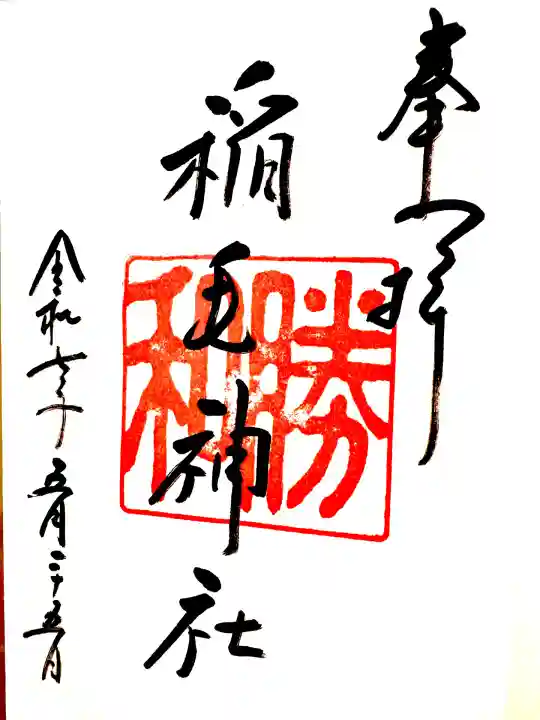 奉拝
稲毛神社
勝利
令和七年五月二十五日